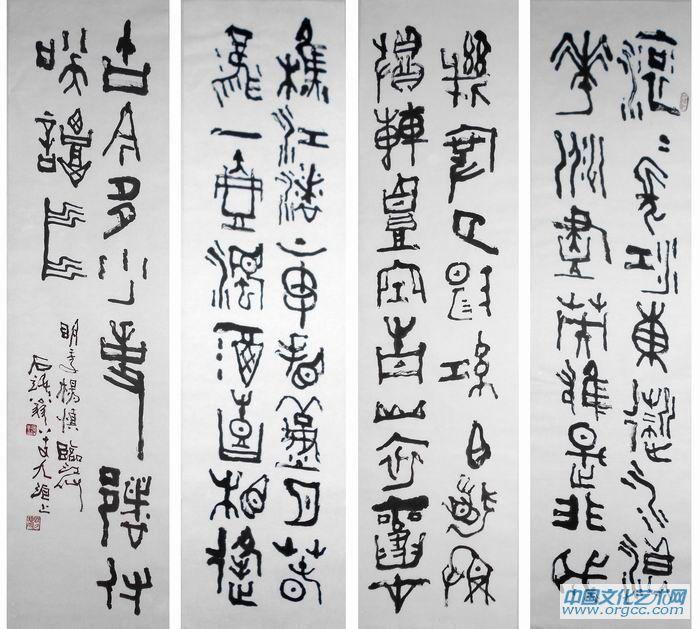 滾〻長江東逝水浪
花淘盡英雄是非成
敗轉頭空青山依舊在
幾度夕陽紅白髮漁
樵江渚上慣看秋月春
風一壺濁酒喜相逢
古今多少事都付
笑談中
明楊慎臨江仙
中国文化艺术网
www.orgcc.com